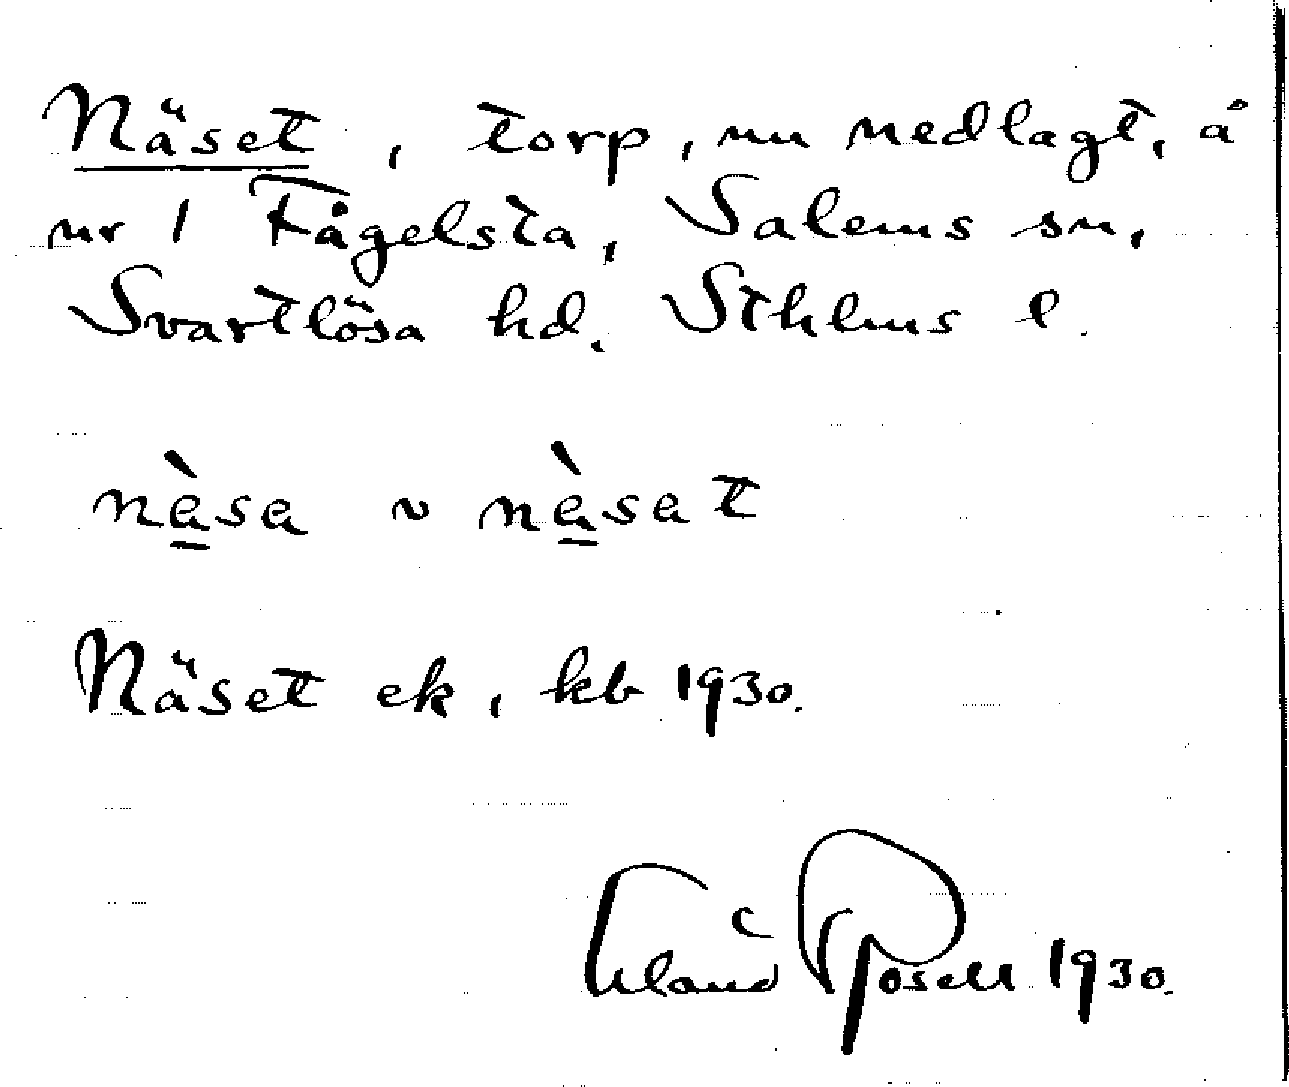 Näset, torp, nu nedlagt, å
nr 1 Fågelsta, Salems sn,
Svartlösa hd. Sthlms l.
nὰsa ~ nὰsat
Näset ek, kb 1930.
Rosell 1930.